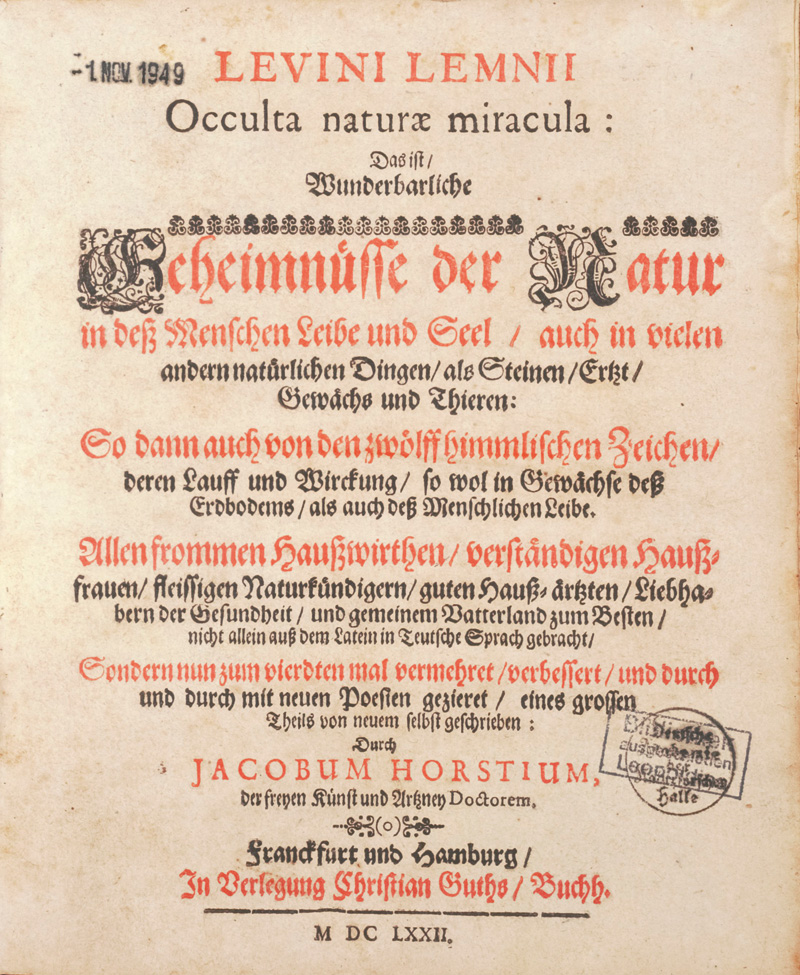 -1. NOV. 1949
LEVINI LEMNII
Occulta naturæ miracula :
Das ist /
Wunderbarliche
Geheimnüsse der Natur
in deß Menschen Leibe und Seel / auch in vielen
andern natürlichen Dingen / als Steinen / Ertzt /
Gewächs und Thieren:
So dann auch von den zwölff himmlischen Zeichen /
deren Lauff und Wirckung / so wol in Gewächse deß
Erdbodems / als auch deß Menschlichen Leibe.
Allen frommen Haußwirthen / verständigen Hauß-
frauen / fleissigen Naturkündigern / guten Hauß-ärtzten / Liebha-
bern der Gesundheit / und gemeinem Vatterland zum Besten /
nicht allein auß dem Latein in Teutsche Sprach gebracht /
Sondern nun zum vierdten mal vermehret / verbessert / und durch
und durch mit neuen Poesien gezieret / eines grossen
Theils von neuem selbst geschrieben :
Durch
JACOBUM HORSTIUM,
der freyen Künst und Artzney Doctorem.
(o)
Franckfurt und Hamburg /
In Verlegung Christian Guths / Buchh.
M DC LXXII.
Deutsche
Halle